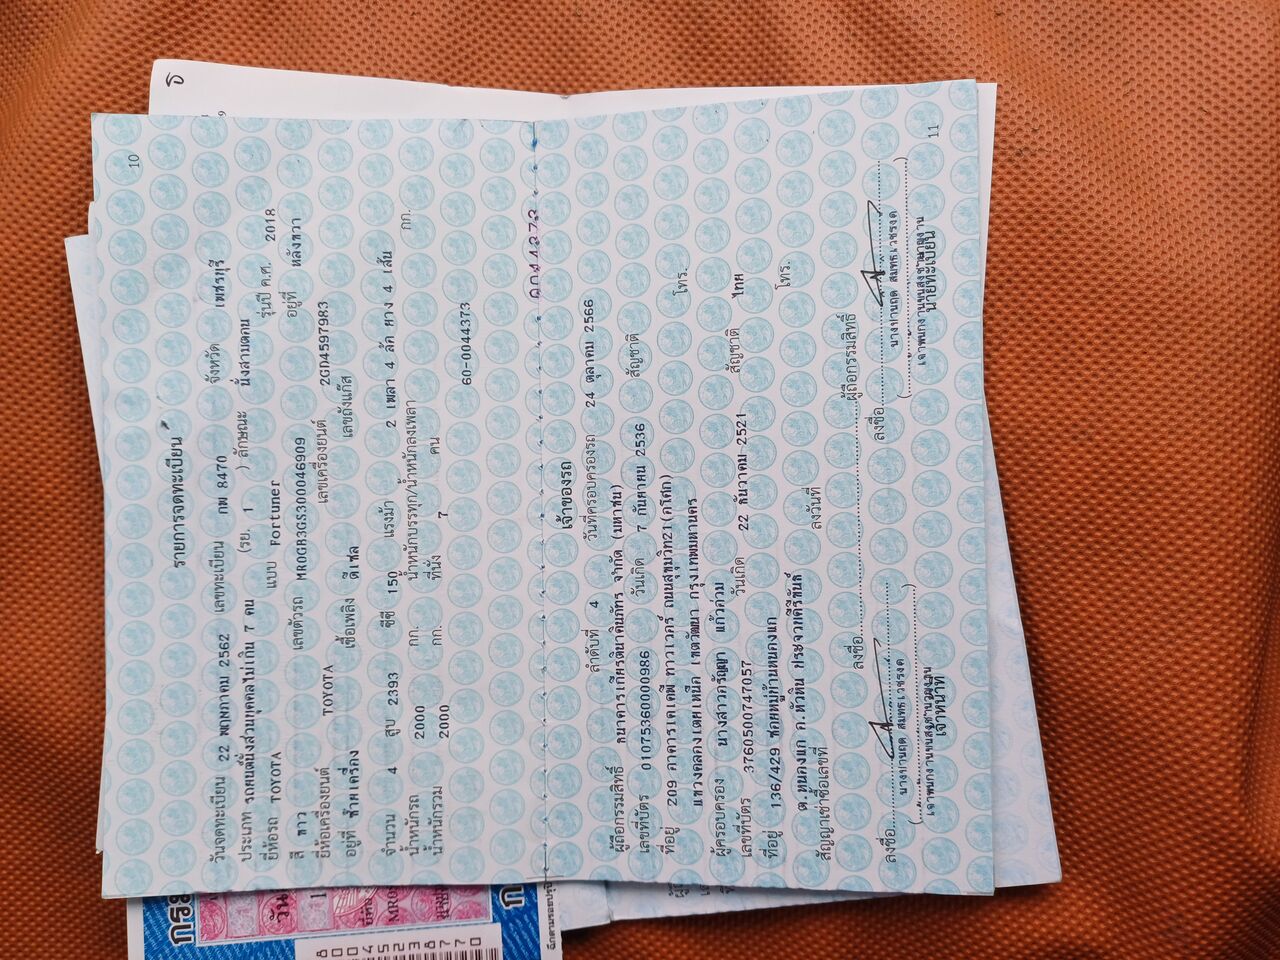 10
รายการจดทะเบียน
วันจดทะเบียน 22 พฤษภาคม 2562 เลขทะเบียน กพ 8470 จังหวัด เพชรบุรี
ประเภท รถยนต์นั่งส่วนบุคคลไม่เกิน 7 คน (รย. 1 ) ลักษณะ นั่งสามตอน
ยี่ห้อรถ TOYOTA แบบ Fortuner รุ่นปี ค.ศ. 2018
สี ขาว เลขตัวรถ MR0GB3GS300046909 อยู่ที่ หลังขวา
ยี่ห้อเครื่องยนต์ TOYOTA เลขเครื่องยนต์ 2GD4597983
อยู่ที่ ซ้ายเครื่อง เชื้อเพลิง ดีเซล เลขถังแก๊ส
จำนวน 4 สูบ 2393 ซีซี 150 แรงม้า 2 เพลา 4 ล้อ ยาง 4 เส้น
น้ำหนักรถ 2000 กก. น้ำหนักบรรทุก/น้ำหนักลงเพลา กก.
น้ำหนักรวม 2000 กก. ที่นั่ง 7 คน
60-0044373
เจ้าของรถ
ลำดับที่ 4 วันที่ครอบครองรถ 24 ตุลาคม 2566
ผู้ถือกรรมสิทธิ์ ธนาคารเกียรตินาคินภัทร จำกัด (มหาชน)
เลขที่บัตร 0107536000986 วันเกิด 7 กันยายน 2536 สัญชาติ
ที่อยู่ 209 อาคารเคเคพี ทาวเวอร์ ถนนสุขุมวิท21(อโศก)
แขวงคลองเตยเหนือ เขตวัฒนา กรุงเทพมหานคร โทร.
ผู้ครอบครอง นางสาวภรัญญา แก้วก่วม
เลขที่บัตร 3760500747057 วันเกิด 22 ธันวาคม 2521 สัญชาติ ไทย
ที่อยู่ 136/429 ซอยหมู่บ้านหนองแก
ต.หนองแก อ.หัวหิน ประจวบคีรีขันธ์ โทร.
สัญญาเช่าซื้อเลขที่ ลงวันที่
ลงชื่อ ผู้ถือกรรมสิทธิ์
ลงชื่อ ลงชื่อ
เจ้าหน้าที่ นายทะเบียน
11